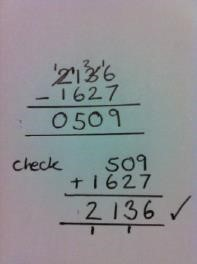 2136
- 1627
0509
check 509
+ 1627
2136 ✓
1 1